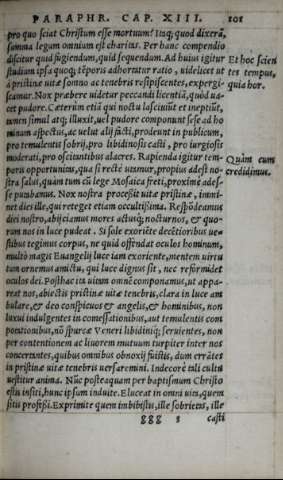 PARAPHR. CAP. XIII. 101
pro quo sciat Christum esse mortuum? Itaq; quod dixerã,
summa legum omnium est charitas. Per hanc compendio
discitur quid fugiendum, quid sequendum. Ad huius igitur
studium ipsa quoq; tẽporis adhortatur ratio, uidelicet ut
à pristinæ uitæ somno ac tenebris resipiscentes, expergi-
scamur. Nox præbere uidetur peccandi licentiã, quòd ua-
cet pudore. Cæterùm etiã qui noctu lasciuiũt et ineptiũt,
ijdem simul atq; illuxit, uel pudore componunt sese ad ho
minum aspectus, ac uelut alij facti, prodeunt in publicum,
pro temulentis sobrij, pro libidinosis casti, pro iurgiosis
moderati, pro oscitantibus alacres. Rapienda igitur tem-
poris opportunitas, qua si rectè utimur, propius adest no-
stra salus, quàm tum cũ lege Mosaica freti, proximè adesse
putabamus. Nox nostra processit uitæ pristinæ, immi-
net dies ille, qui reteget etiam occultissima. Respõdeamus
diei nostro, abijciamus mores actusq; nocturnos, & quo-
rum nos in luce pudeat. Si sole exoriẽte decẽtioribus ue-
stibus tegimus corpus, ne quid offendat oculos hominum,
multò magis Euangelij luce iam exoriente, mentem uirtu
tum ornemus amictu, qui luce dignus sit, nec reformidet
oculos dei. Posthac ita uitam omnẽ componamus, ut appa-
reat nos, abiectis pristinæ uitæ tenebris, clara in luce am
bulare, & deo conspicuos & angelis, & hominibus, non
luxui indulgentes in comessationibus, aut temulentis com
potationibus, nõ spurcæ Veneri libidiniq; seruientes, non
per contentionem ac liuorem mutuum turpiter inter nos
concertantes, quibus omnibus obnoxij fuistis, dum errãtes
in pristinæ uitæ tenebris uersaremini. Indecorè tali cultu
uestitur anima. Nũc posteaquam per baptismum Christo
estis insiti, hunc ipsum induite. Eluceat in omni uita, quem
sitis professi. Exprimite quem imbibistis, ille sobrietas, ille
ggg 5 casti
Et hoc scien
tes tempus,
quia hor.
Quàm cum
credidimus.